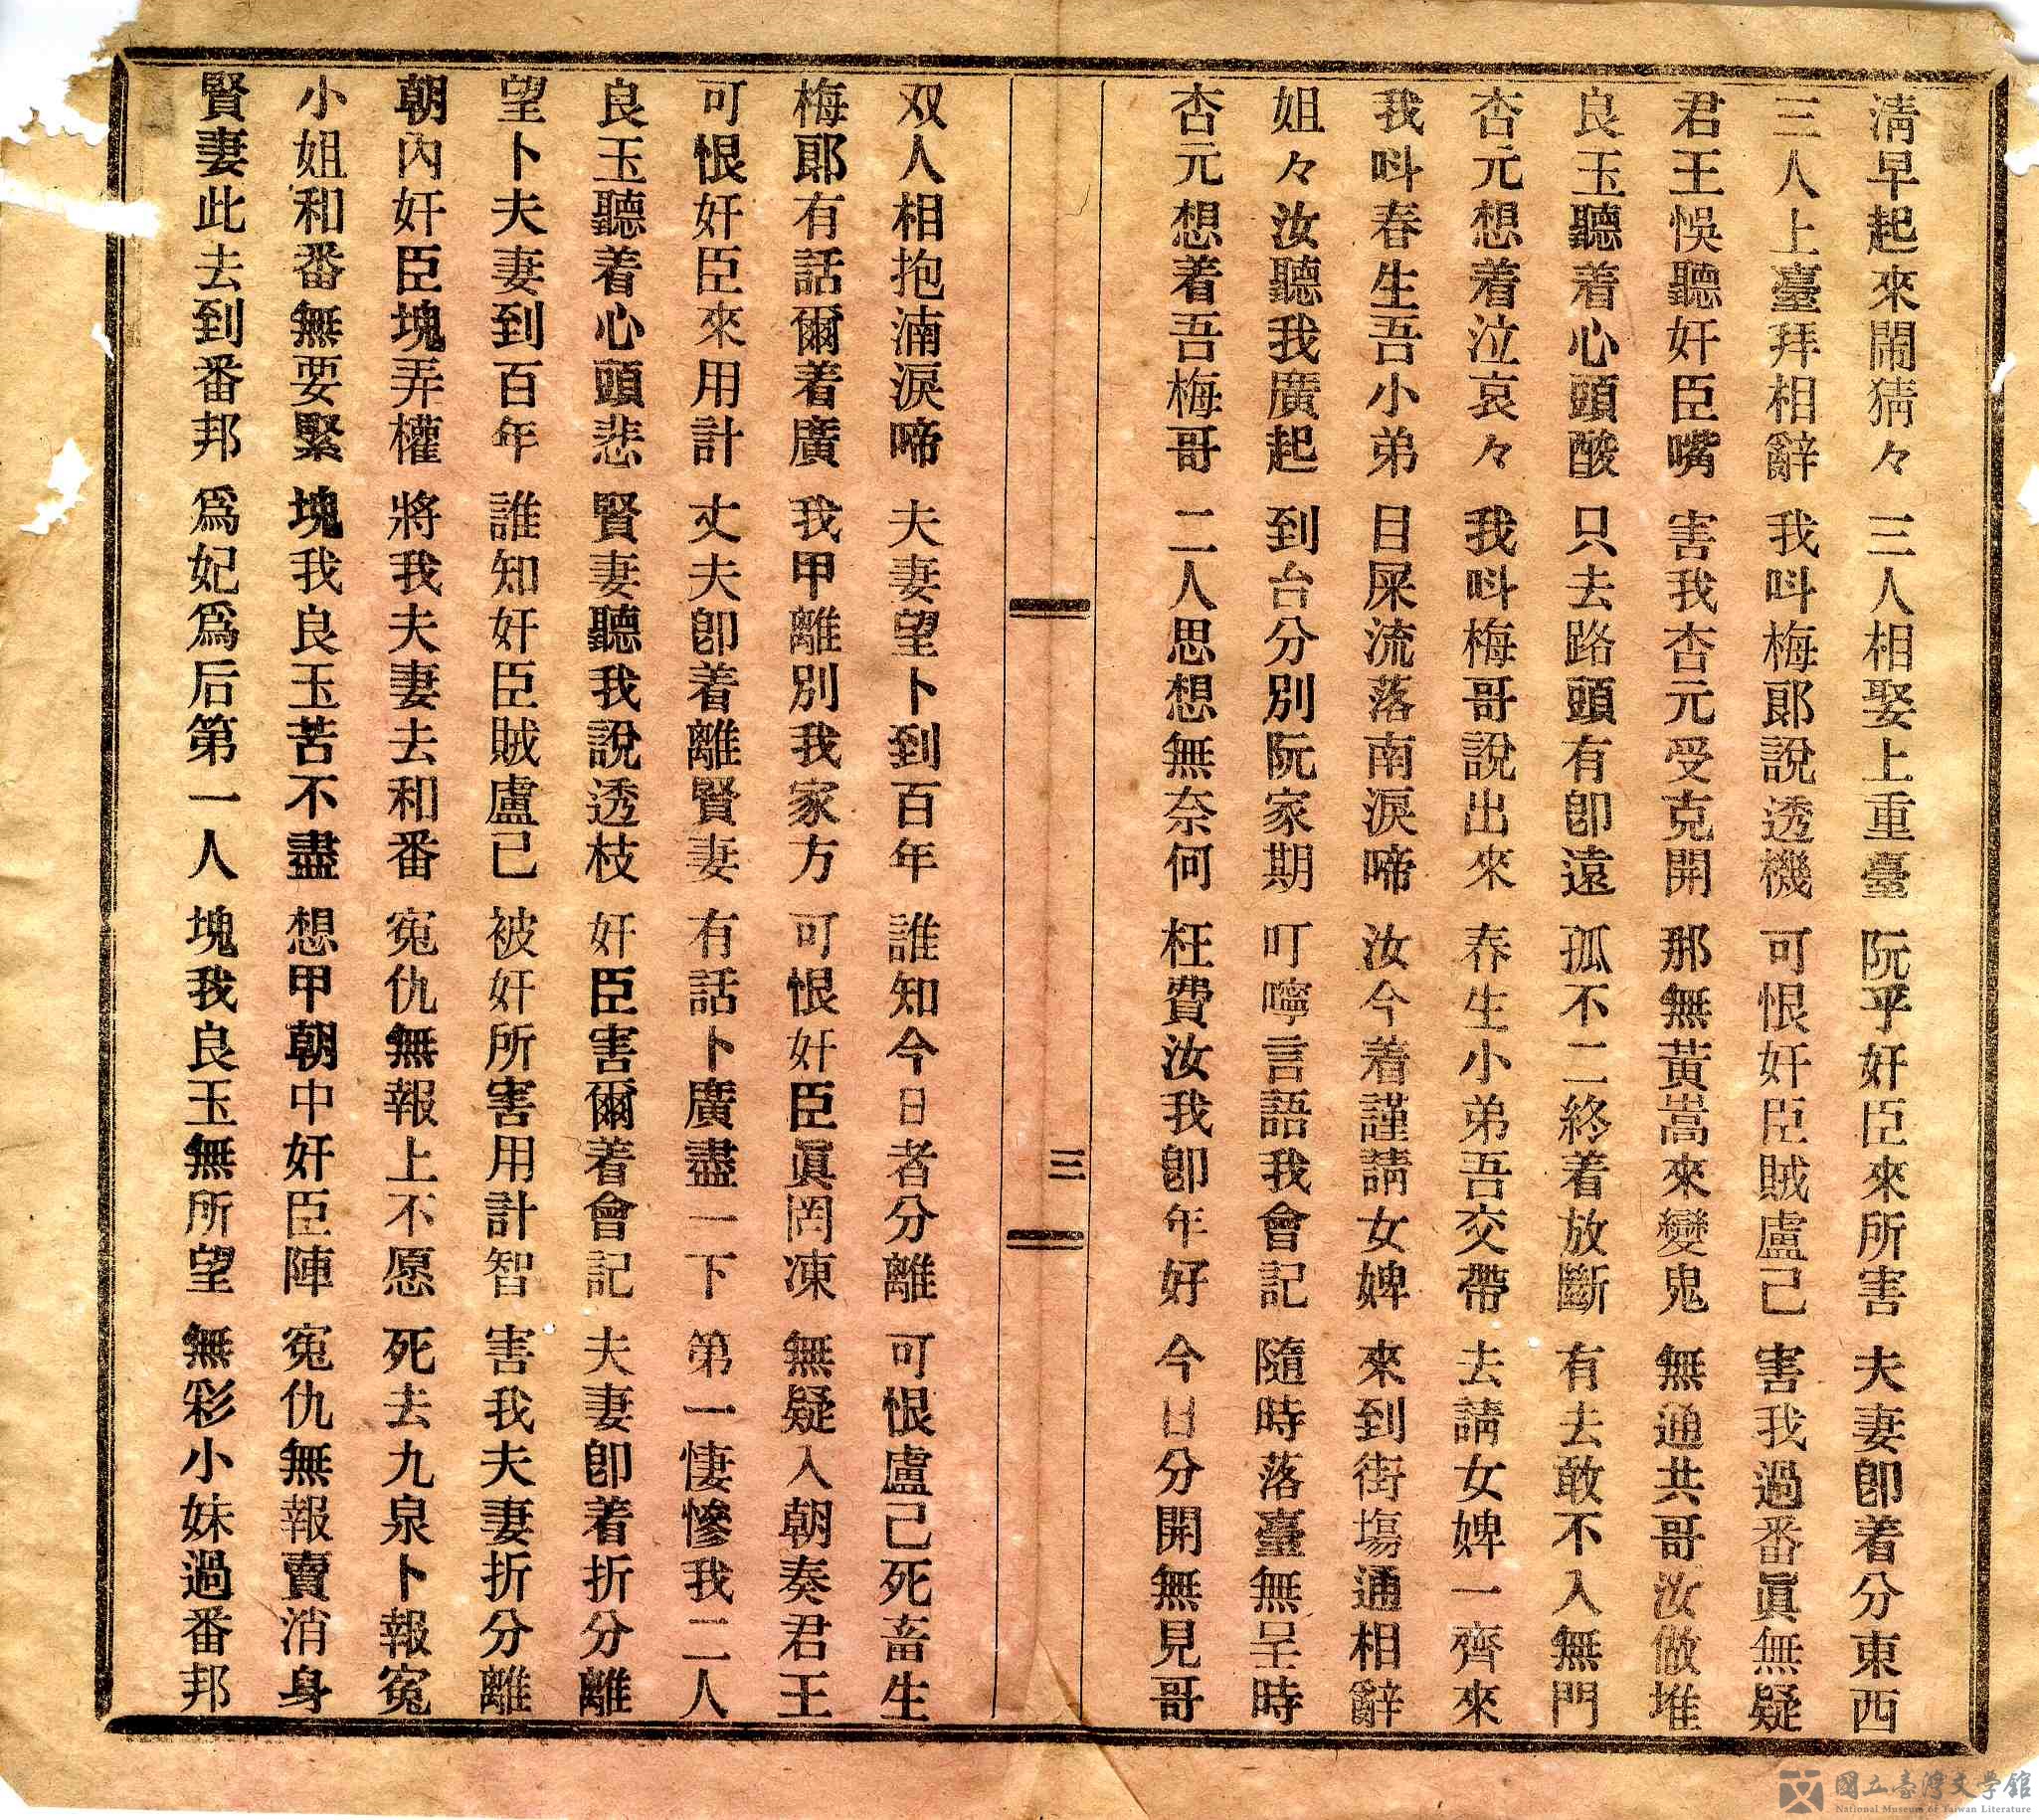 淸早起來鬧猜々 三人相娶上重臺 阮乎奸臣來所害 夫妻卽着分東西
三人上臺拜相辭 我呌梅郞說透機 可恨奸臣賊盧己 害我過番眞無疑
君王悞聽奸臣嘴 害我杏元受克開 那無黃嵩來變鬼 無通共哥汝做堆
良玉聽着心頭酸 只去路頭有卽遠 孤不二終着放斷 有去敢不入無門
杏元想着泣哀々 我呌梅哥說出來 春生小弟吾交帶 去請女婢一齊來
我呌春生吾小弟 目屎流落南淚啼 汝今着謹請女婢 來到街塲通相辭
姐々汝聽我廣起 到台分別阮家期 叮嚀言語我會記 隨時落臺無呈時
杏元想着吾梅哥 二人思想無奈何 枉費汝我卽年好 今日分開無見哥
三
双人相抱湳淚啼 夫妻望卜到百年 誰知今日者分離 可恨盧己死畜生
梅郞有話爾着廣 我甲離別我家方 可恨奸臣眞罔凍 無疑入朝奏君王
可恨奸臣來用計 丈夫卽着離賢妻 有話卜廣盡一下 第一悽慘我二人
良玉聽着心頭悲 賢妻聽我說透枝 奸臣害爾着會記 夫妻卽着折分離
望卜夫妻到百年 誰知奸臣賊盧已 被奸所害用計智 害我夫妻折分離
朝內奸臣塊弄權 將我夫妻去和番 寃仇無報上不愿 死去九泉卜報寃
小姐和番無要緊 塊我良玉苦不盡 想甲朝中奸臣陣 寃仇無報賣消身
賢妻此去到番邦 爲妃爲后第一人 塊我良玉無所望 無彩小妹過番邦
國立臺灣文學館
National Museum of Taiwan Literature